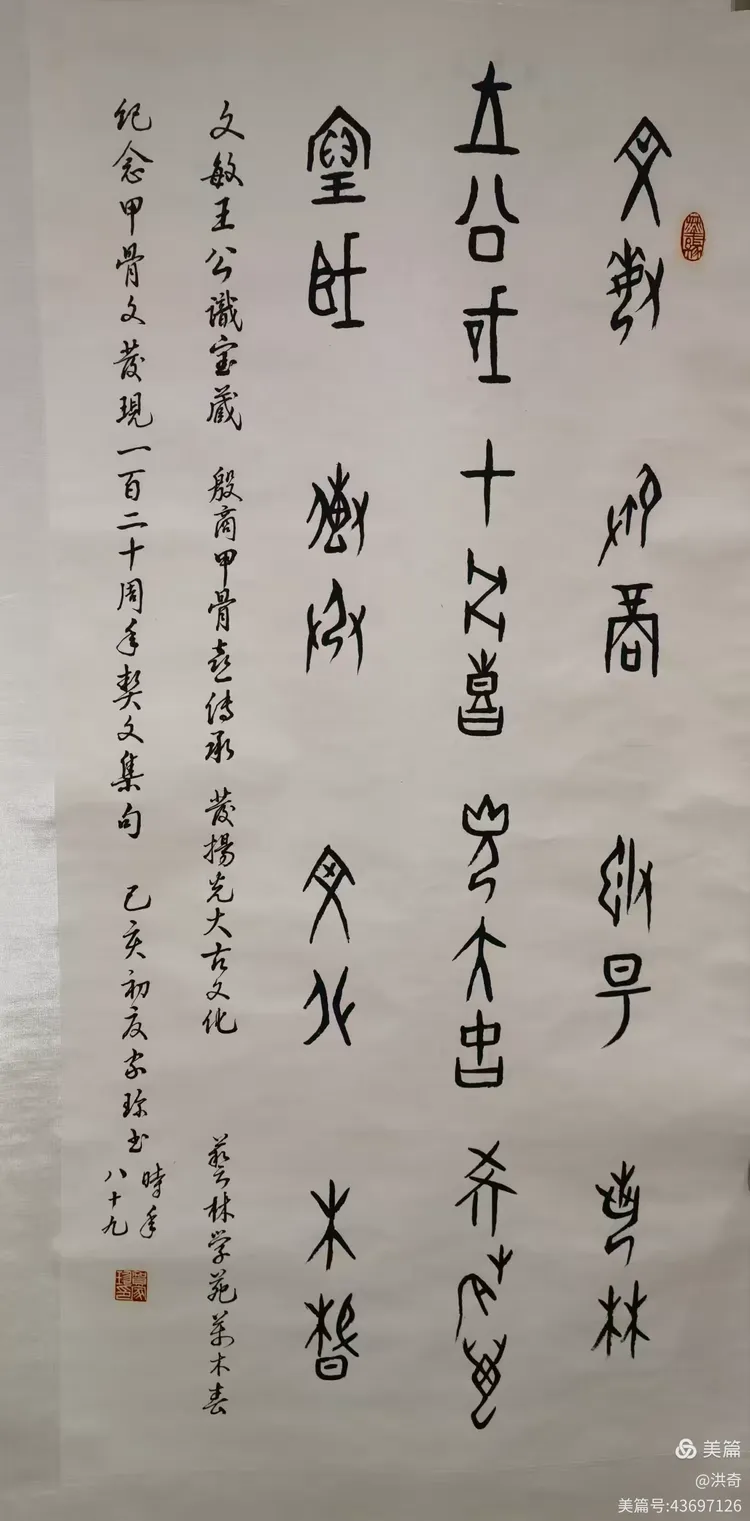 文敏 殷商 發揚 藝林
王公識 甲骨喜 光大古 学苑萬
宝藏 傳承 文化 木春
文敏王公識宝藏 殷商甲骨喜傳承 發揚光大古文化 藝林学苑萬木春
紀念甲骨文發現一百二十周年契文集句 己亥初夏家书
時年
八十九
美篇
@洪奇
美篇号:43697126